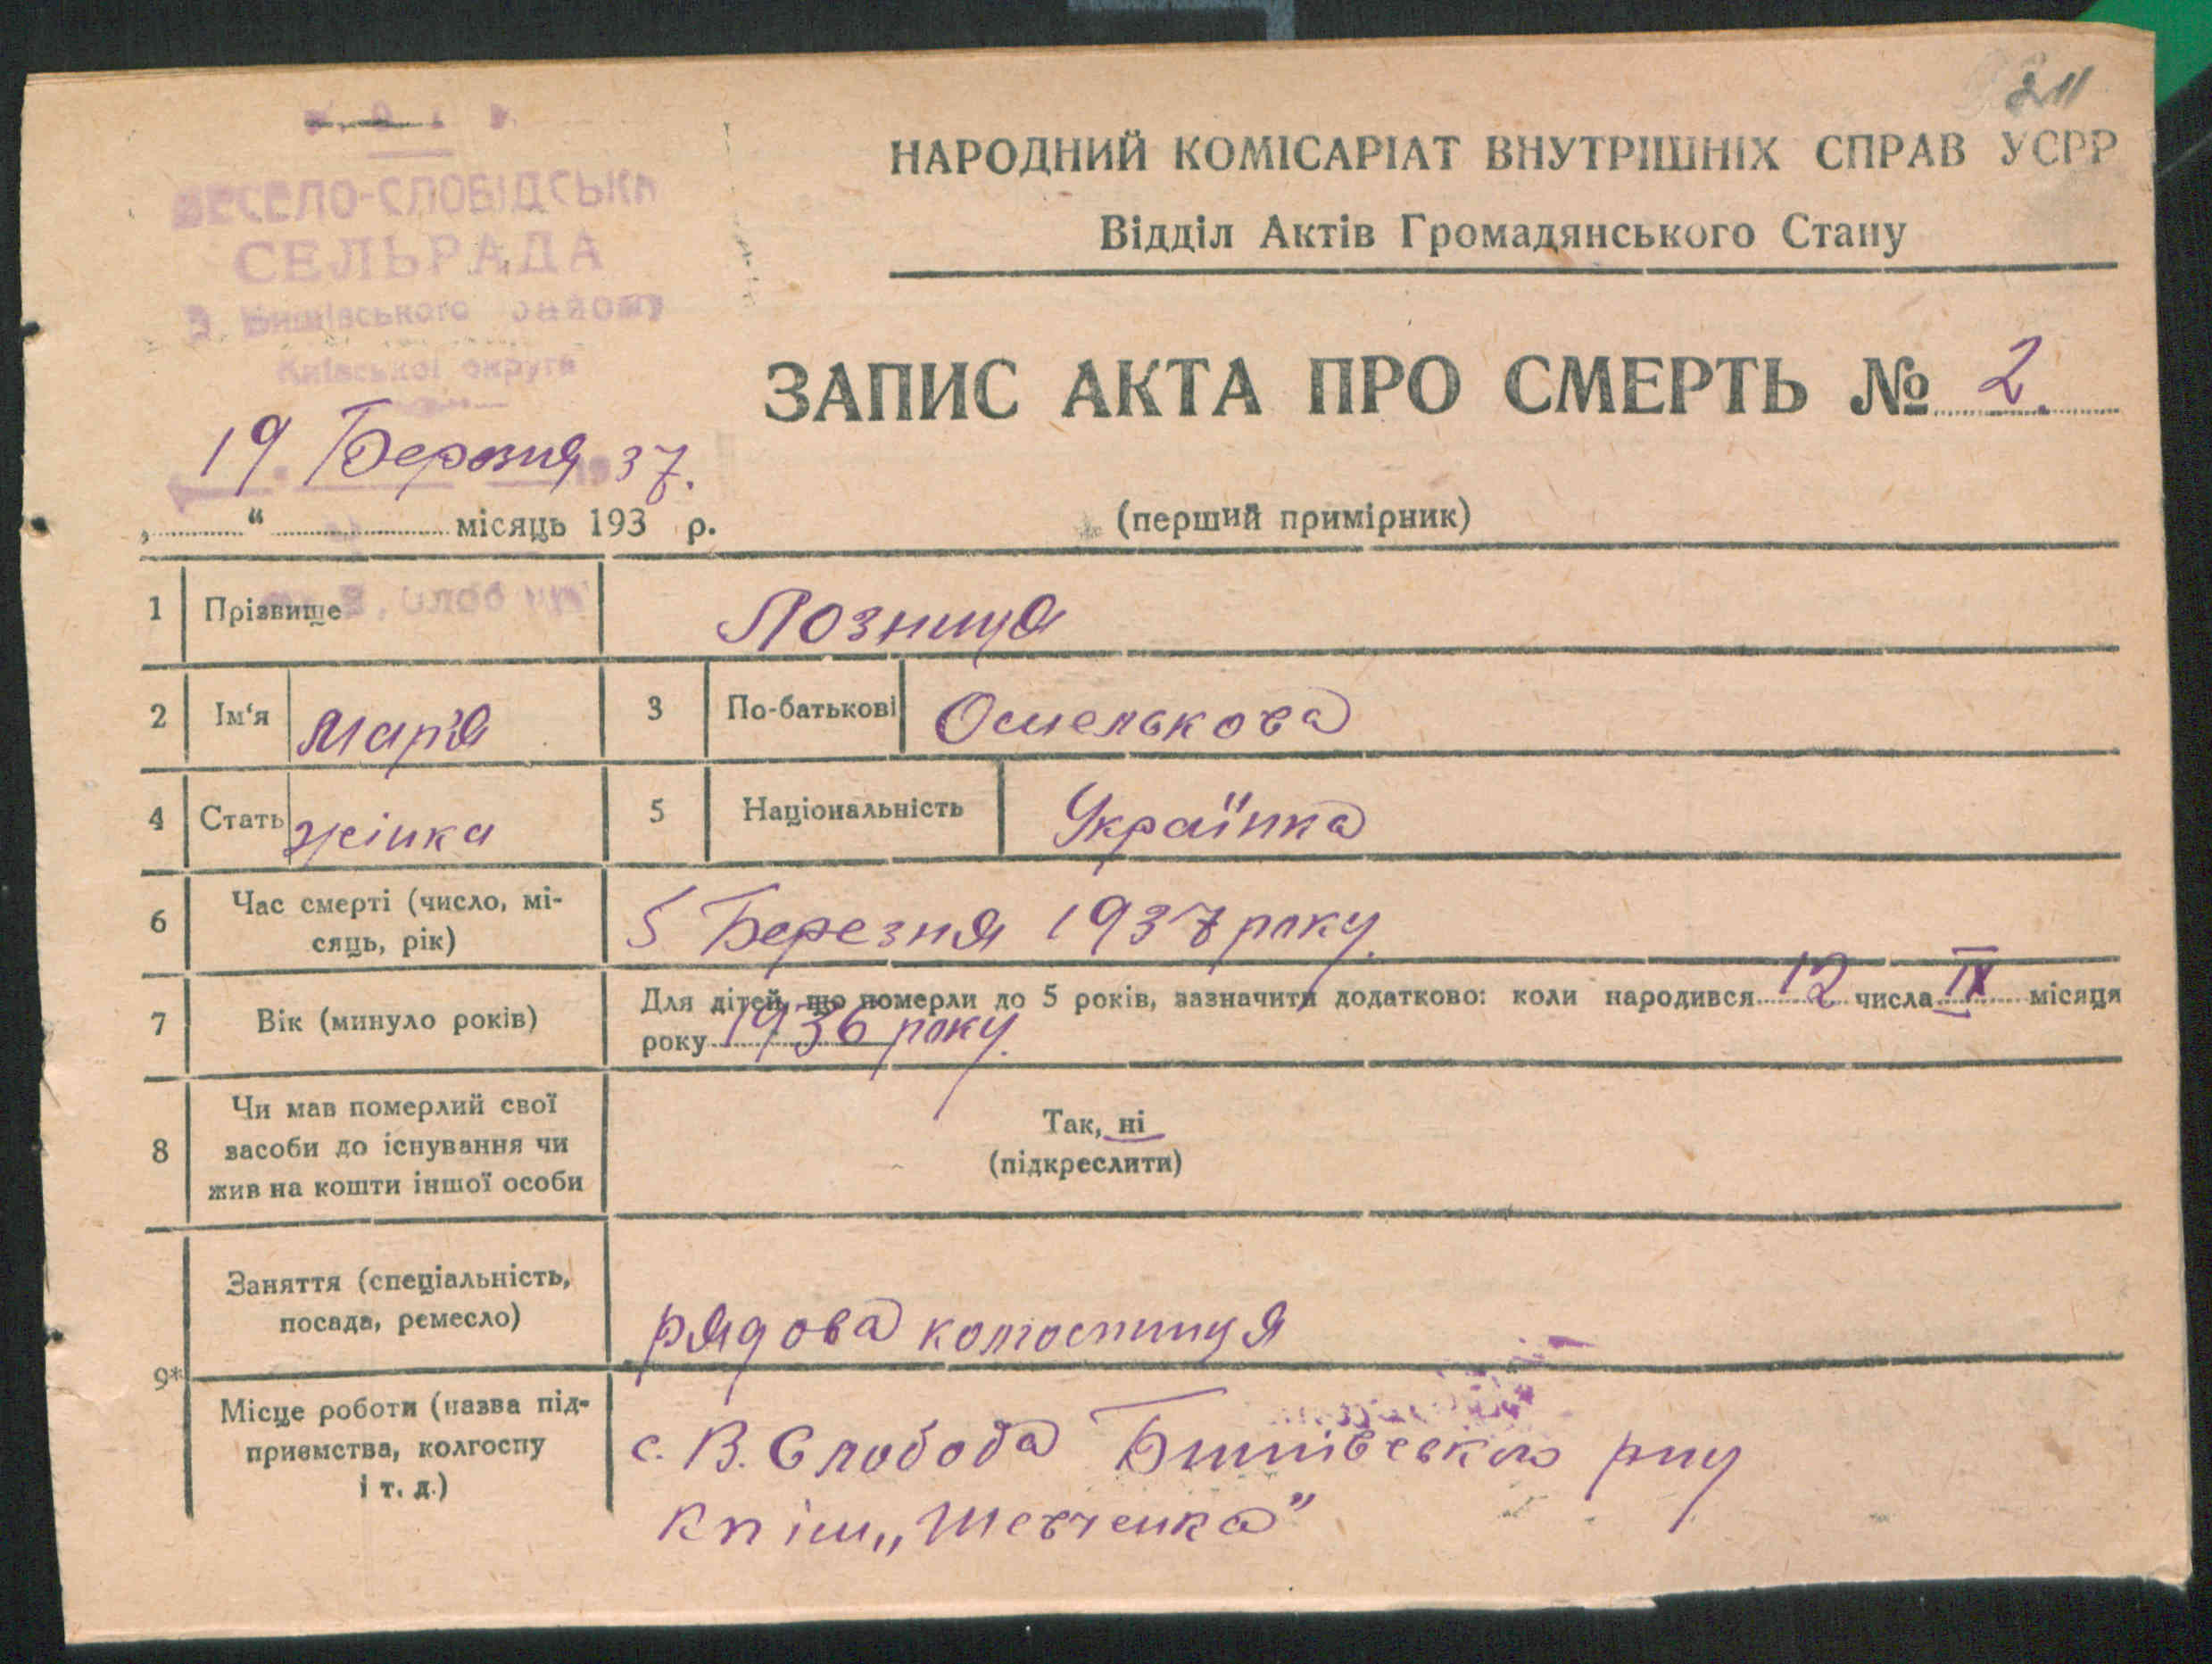 211
ВЕСЕЛО-СЛОБІДСЬКА
СЕЛЬРАДА
району
Київської округи
НАРОДНИЙ КОМІСАРІАТ ВНУТРІШНІХ СПРАВ УСРР
Відділ Актів Громадянського Стану
ЗАПИС АКТА ПРО СМЕРТЬ № 2.
(перший примірник)
19 Березня 37.
„ “ місяць 193 р.
1 Прізвище Лозниця
2 Ім‘я Мар'я 3 По-батькові Омелькова
4 Стать жінка 5 Національність Українка
6 Час смерті (число, мі-
сяць, рік) 5 Березня 1937 року.
7 Вік (минуло років) Для дітей, що померли до 5 років, зазначити додатково: коли народився 12 числа IX місяця
року 1936 року.
8 Чи мав померлий свої
засоби до існування чи
жив на кошти іншої особи
Так, ні
(підкреслити)
9* Заняття (спеціальність,
посада, ремесло) рядова колгоспниця
Місце роботи (назва під-
приємства, колгоспу
і т. д.)
с. В. Слобода Бишівського р-ну
кп ім „Шевченка”